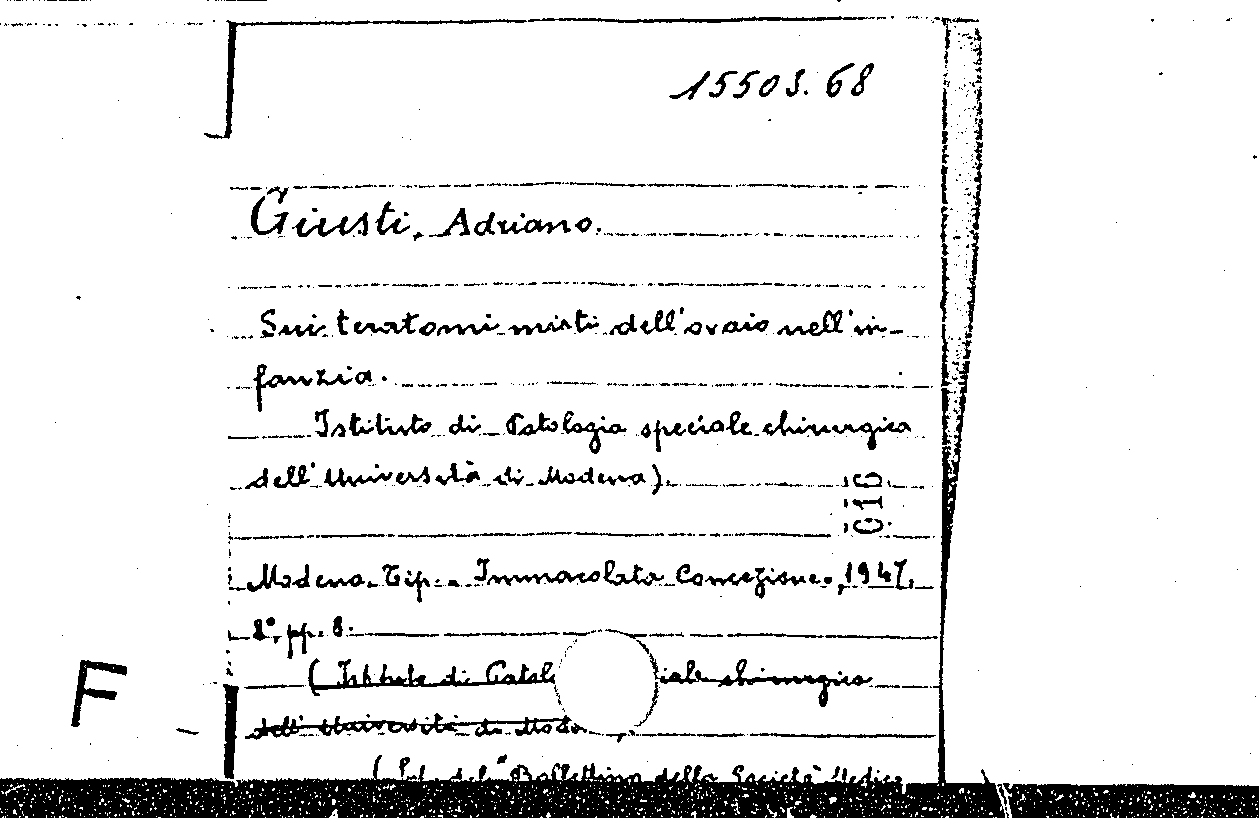 15503.68
Giusti, Adriano.
Sui teratomi misti dell'ovaio nell'in-
fanzia.
Istituto di Patologia speciale chirurgica
dell'Università di Modena).
016
Modena. Tip. Immacolata Concezione, 1947.
8°, pp. 8.
(Istituto di Patol iale chirurgica
dell'Università di Mode
F
( del "Bollettino della Società Medico